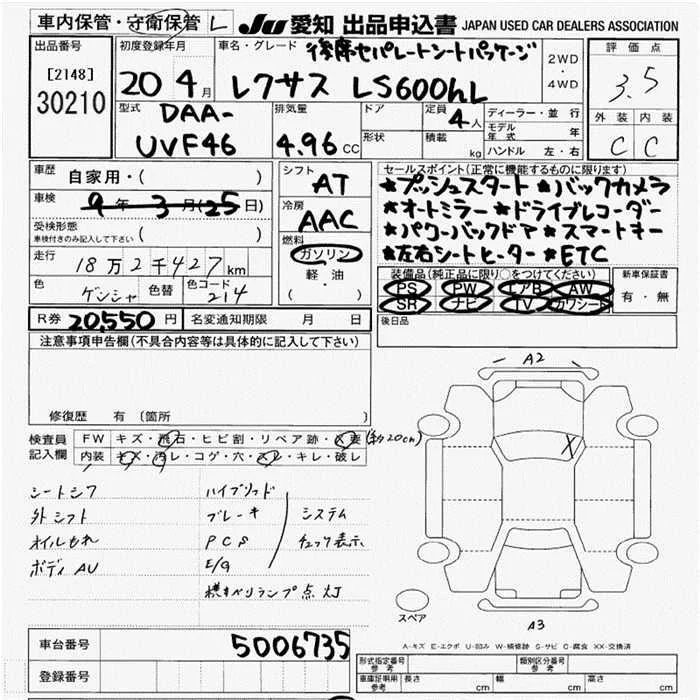 車内保管・守衛保管 L JU 愛知 出品申込書 JAPAN USED CAR DEALERS ASSOCIATION
出品番号 [2148] 30210
初度登録年月 20 4月
車名・グレード 後席セパレートシートパッケージ
レクサス LS600hL
2WD・4WD
評価点 3.5
外装 内装
C C
型式 DAA-UVF46
排気量 4.96 CC
ドア
形状
定員 4人
積載 kg
ディーラー・並行
モデル年式 年
ハンドル 左・右
車歴 自家用・( )
車検 9年3月(25日)
受検形態 車検付きのみ記入して下さい ( )
走行 18万2千427km
色 ゲンシャ 色替 色コード 214
シフト AT
冷房 AAC
燃料 ガソリン
軽・油
( ・ )
セールスポイント(正常に機能するものに限ります)
★プッシュスタート ★バックカメラ
★オートミラー ★ドライブレコーダー
★パワーバックドア ★スマートキー
★左右シートヒーター ★ETC
装備品(純正品に限り○をつけてください)
PS PW エアB AW
SR ナビ TV カワシート
新車保証書
有・無
R券 20,550円 名変通知期限 月 日
後日品
注意事項申告欄(不具合内容等は具体的に記入して下さい)
修復歴 有 (箇所 )
検査員記入欄
FW キズ・飛石・ヒビ割・リペア跡・ (約20cm)
内装 キズ・汚レ・コゲ・穴・スレ・キレ・破レ
シートシワ
外シフト
オイルもれ
ボディAU
ハイブリッド
ブレーキ
PCS
E/G
横すべりランプ点灯
システム
チェック表示
A2
X
スペア
A3
A-キズ E-エクボ U-凹み W-補修跡 S-サビ C-腐食 XX-交換済
車台番号 5006735
登録番号
形式指定番号 参考
類別区分番号 参考
車庫証明用 参考 長さ cm 幅 cm 高さ cm